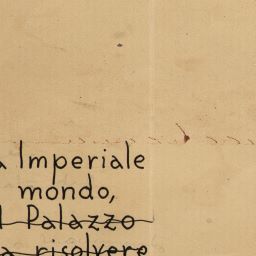 a Imperiale
mondo,
l Palazzo
a risolvere